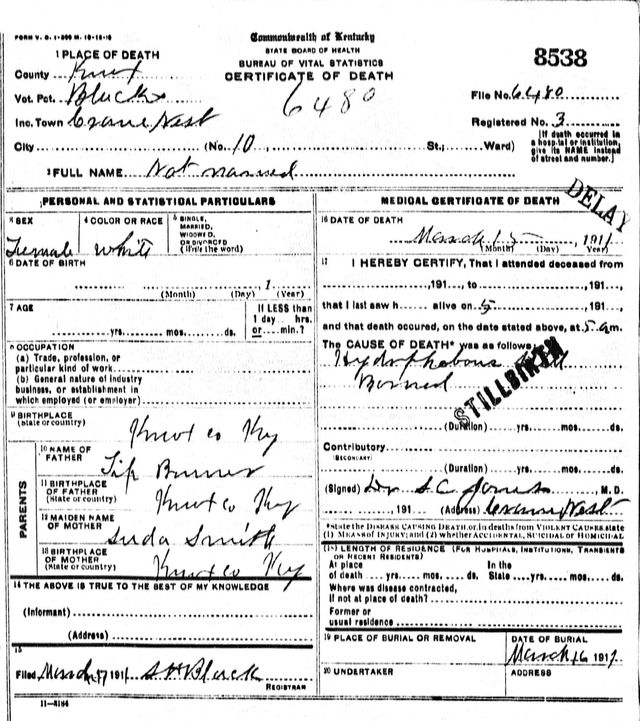 FORM V. S. 1-500 M. 10-15-10
Commonwealth of Kentucky
STATE BOARD OF HEALTH
BUREAU OF VITAL STATISTICS
CERTIFICATE OF DEATH
8538
1 PLACE OF DEATH
County Knox
Vot. Pct. Black
6480
File No. 6480
Inc. Town Crane Nest
Registered No. 3
City (No. 10 St.; Ward)
[If death occurred in a hospital or institution, give its NAME instead of street and number.]
2 FULL NAME Not named
DELAY
PERSONAL AND STATISTICAL PARTICULARS
3 SEX
Female
4 COLOR OR RACE
White
5 SINGLE, MARRIED, WIDOWED, OR DIVORCED (Write the word)
6 DATE OF BIRTH
1
(Month) (Day) (Year)
7 AGE
yrs. mos. ds.
If LESS than 1 day hrs. or min.?
8 OCCUPATION
(a) Trade, profession, or
particular kind of work
(b) General nature of industry
business, or establishment in
which employed (or employer)
9 BIRTHPLACE
(State or country)
Knox co Ky
PARENTS
10 NAME OF FATHER
11 BIRTHPLACE OF FATHER (State or country)
Knox co Ky
12 MAIDEN NAME OF MOTHER
Suda Smith
13 BIRTHPLACE OF MOTHER (State or country)
Knox co Ky
14 THE ABOVE IS TRUE TO THE BEST OF MY KNOWLEDGE
(Informant)
(Address)
15
Filed March 17 1911 Black
REGISTRAR
11-3184
MEDICAL CERTIFICATE OF DEATH
16 DATE OF DEATH
March 15, 1911
(Month) (Day) (Year)
17 I HEREBY CERTIFY, That I attended deceased from
, 191 , to , 191 ,
that I last saw h alive on , 191 ,
and that death occured, on the date stated above, at 5 am.
The CAUSE OF DEATH* was as follows:
Borned
STILLBIRTH
(Duration) yrs. mos. ds.
Contributory
(SECONDARY)
(Duration) yrs. mos. ds.
(Signed) Dr S. C. Jones, M. D.
, 191 (Address) Crane Nest
*State the DISEASE CAUSING DEATH, or, in deaths from VIOLENT CAUSES state
(1) MEANS of INJURY; and (2) whether ACCIDENTAL, SUICIDAL or HOMICIDAL
18 LENGTH OF RESIDENCE (FOR HOSPITALS, INSTITUTIONS, TRANSIENTS
OR RECENT RESIDENTS)
At place In the
of death yrs. mos. ds. State yrs. mos. ds.
Where was disease contracted,
if not at place of death?
Former or
usual residence
19 PLACE OF BURIAL OR REMOVAL
DATE OF BURIAL
March 16 1911
20 UNDERTAKER
ADDRESS